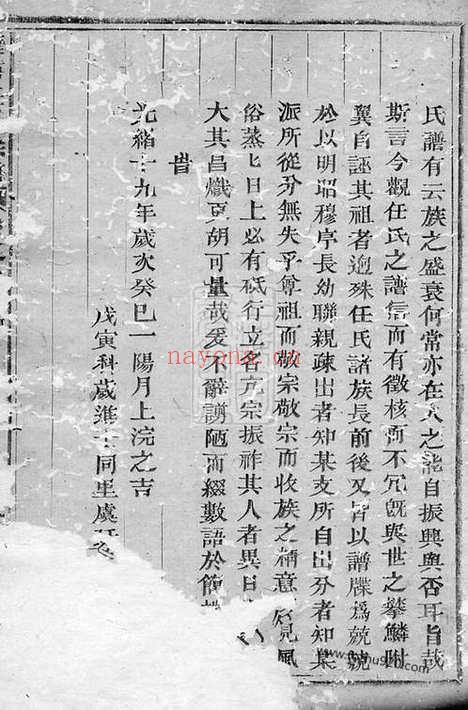 氏譜有云族之盛衰何常亦在人之能自振興與否耳旨哉
斯言今觀任氏之譜信而有徵核而不冗旣與世之攀鱗附
翼自誣其祖者逈殊任氏諸族長前後又皆以譜牒爲兢兢
於以明昭穆序長幼聯親疎出者知某支所自出分者知某
派所從分無失乎尊祖而敬宗敬宗而收族之精意覓風
俗蒸七日上必有砥行立名亢宗振祚其人者異日
大其昌熾更胡可量哉爰不辭謭陋而綴數語於簡
昔
光緒十九年歲次癸巳一陽月上浣之吉
戊寅科歲進士同里虞
nayona.cn